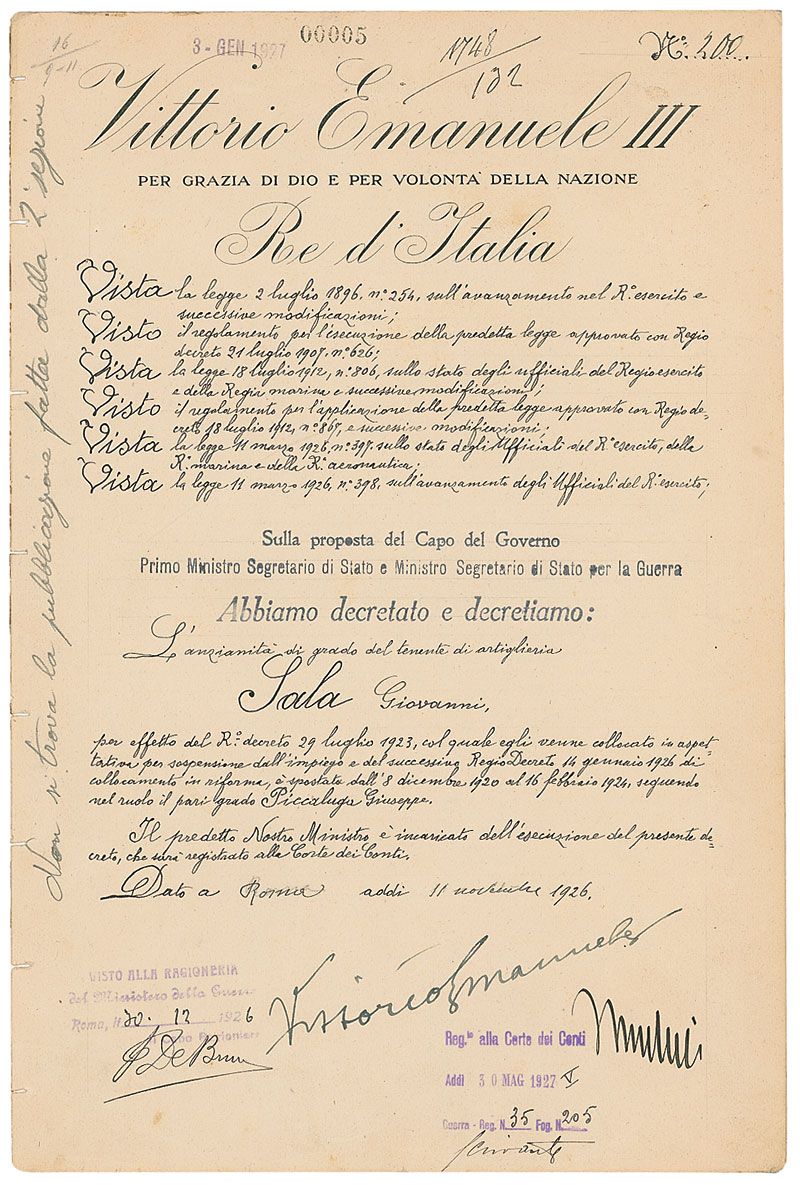 16
9-11
3 - GEN 1927
00005
1748
132
N.° 200
Vittorio Emanuele III
PER GRAZIA DI DIO E PER VOLONTA' DELLA NAZIONE
Re d'Italia
Vista la legge 2 luglio 1896, n.° 254, sull'avanzamento nel R.° esercito e
successive modificazioni;
Visto il regolamento per l'esecuzione della predetta legge approvato con Regio
decreto 21 luglio 1907, n.° 626;
Vista la legge 18 luglio 1912, n.° 806, sullo stato degli ufficiali del Regio esercito
e della Regia marina e successive modificazioni;
Visto il regolamento per l'applicazione della predetta legge approvato con Regio de-
creto 18 luglio 1912, n.° 867, e successive modificazioni;
Vista la legge 11 marzo 1926, n.° 397, sullo stato degli Ufficiali del R.° esercito, della
R.ª marina e della R.ª aeronautica;
Vista la legge 11 marzo 1926, n.° 398, sull'avanzamento degli Ufficiali del R.° esercito;
Sulla proposta del Capo del Governo
Primo Ministro Segretario di Stato e Ministro Segretario di Stato per la Guerra
Abbiamo decretato e decretiamo:
L'anzianità di grado del tenente di artiglieria
Sala Giovanni,
per effetto del R.° decreto 29 luglio 1923, col quale egli venne collocato in aspet-
tativa per sospensione dall'impiego e del successivo Regio Decreto 14 gennaio 1926 di
collocamento in riforma, è spostata dall'8 dicembre 1920 al 16 febbraio 1924, seguendo
nel ruolo il pari grado Piccaluga Giuseppe.
Il predetto Nostro Ministro è incaricato dell'esecuzione del presente de-
creto, che sarà registrato alla Corte dei Conti.
Dato a Roma addì 11 novembre 1926.
Vittorio Emanuele
VISTO ALLA RAGIONERIA
del Ministero della Guerra
Roma, li 30. 12 1926
Reg.to alla Corte dei Conti
Addì 30 MAG 1927 V
Guerra - Reg. N. 35 Fog. N. 205
Non si trova la pubblicazione fatta dalla 2ª sezione